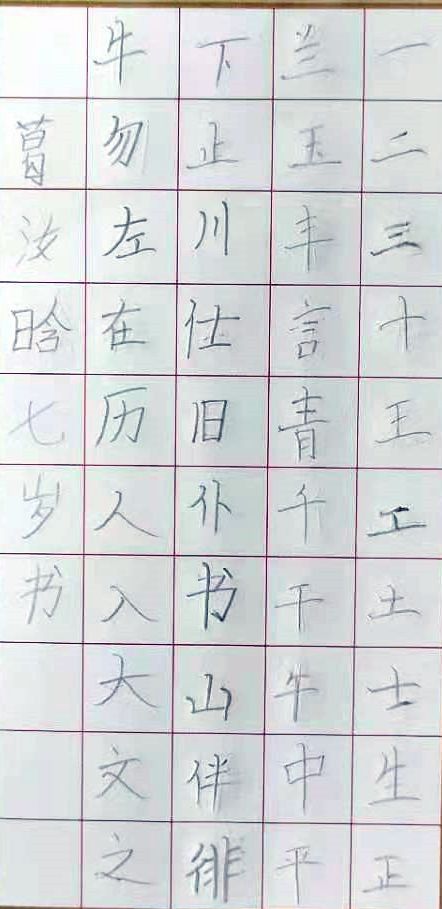 一二三十王工土士生正
兰玉丰言青千干午中平
下止川仕旧仆书山伴徘
牛勿左在历人入大文之
葛汝晗七岁书